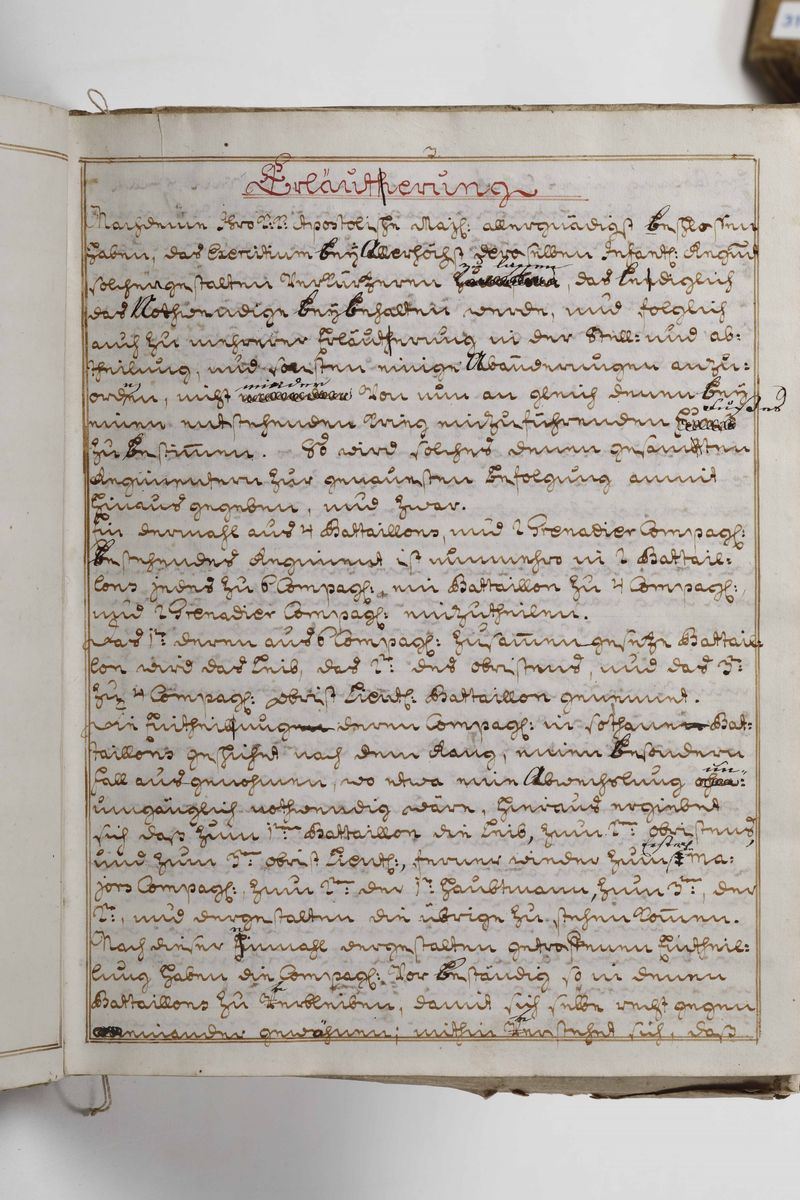 3.
Erläutherung
Nachdeme Ihro K: K: Apostolische Maj: allergnädigst beschlossen
haben, das Exercitium bey Allerhöchst deroselben Infant: Regim
solchergestalten Verkürzeren zu lassen, das lediglich
das Nothwendige beybehalten werde, und folglich
auch zu mehrerer Erläutherung in der Stell- und ab-
theilung, und sonsten einige Abänderungen anzu-
ordnen, nicht minder Von nun an gleich denen bey
einen entstehenden Krieg einzuführenden Fusses
zu bestimmen. So wird solches denen gesamten
Regimentern zur genauesten befolgung anmit
hinaus gegeben, und zwar.
Ein dermahl aus 4 Battaillons, und 2 Grenadier Compag:
bestehendes Regiment ist nunmehro in 2 Battail-
lons jedes zu 6 Compag: ein Battaillon zu 4 Compag:,
und 2 Grenadier Compag: einzutheilen.
Das 1te deren aus 6 Compag: zusammen gesetze Battail-
lon wird das Leib, das 2te des obristens, und das 3te
zu 4 Compag: obrist Lieut: Battaillon genennet.
Die Eintheilung deren Compag: in sothane Bat-
taillons geschiehet nach dem Rang, einen besondern
fall ausgenohmen, wo etwa eine Abwechslung un-
umgänglich nothwendig wäre, hieraus ergiebet
sich daß zum 1ten Battaillon die Leib, zum 2ten obristens,
und zum 3ten obrist Lieut:, ferner wieder zum ersten Ma-
jors Compag:, zum 2ten der 1te Haubtmann, zum 3ten, der
2te, und dergestalten die übrige zu stehen kommen.
Nach dieser Einmahl dergestalten getroffenen Eintheil-
lung haben die Compag: Vor beständig so in denen
Battaillons zu Verbleiben, damit sich selbe recht gegen
einander gewöhnen; mithin Verstehet sich, daß